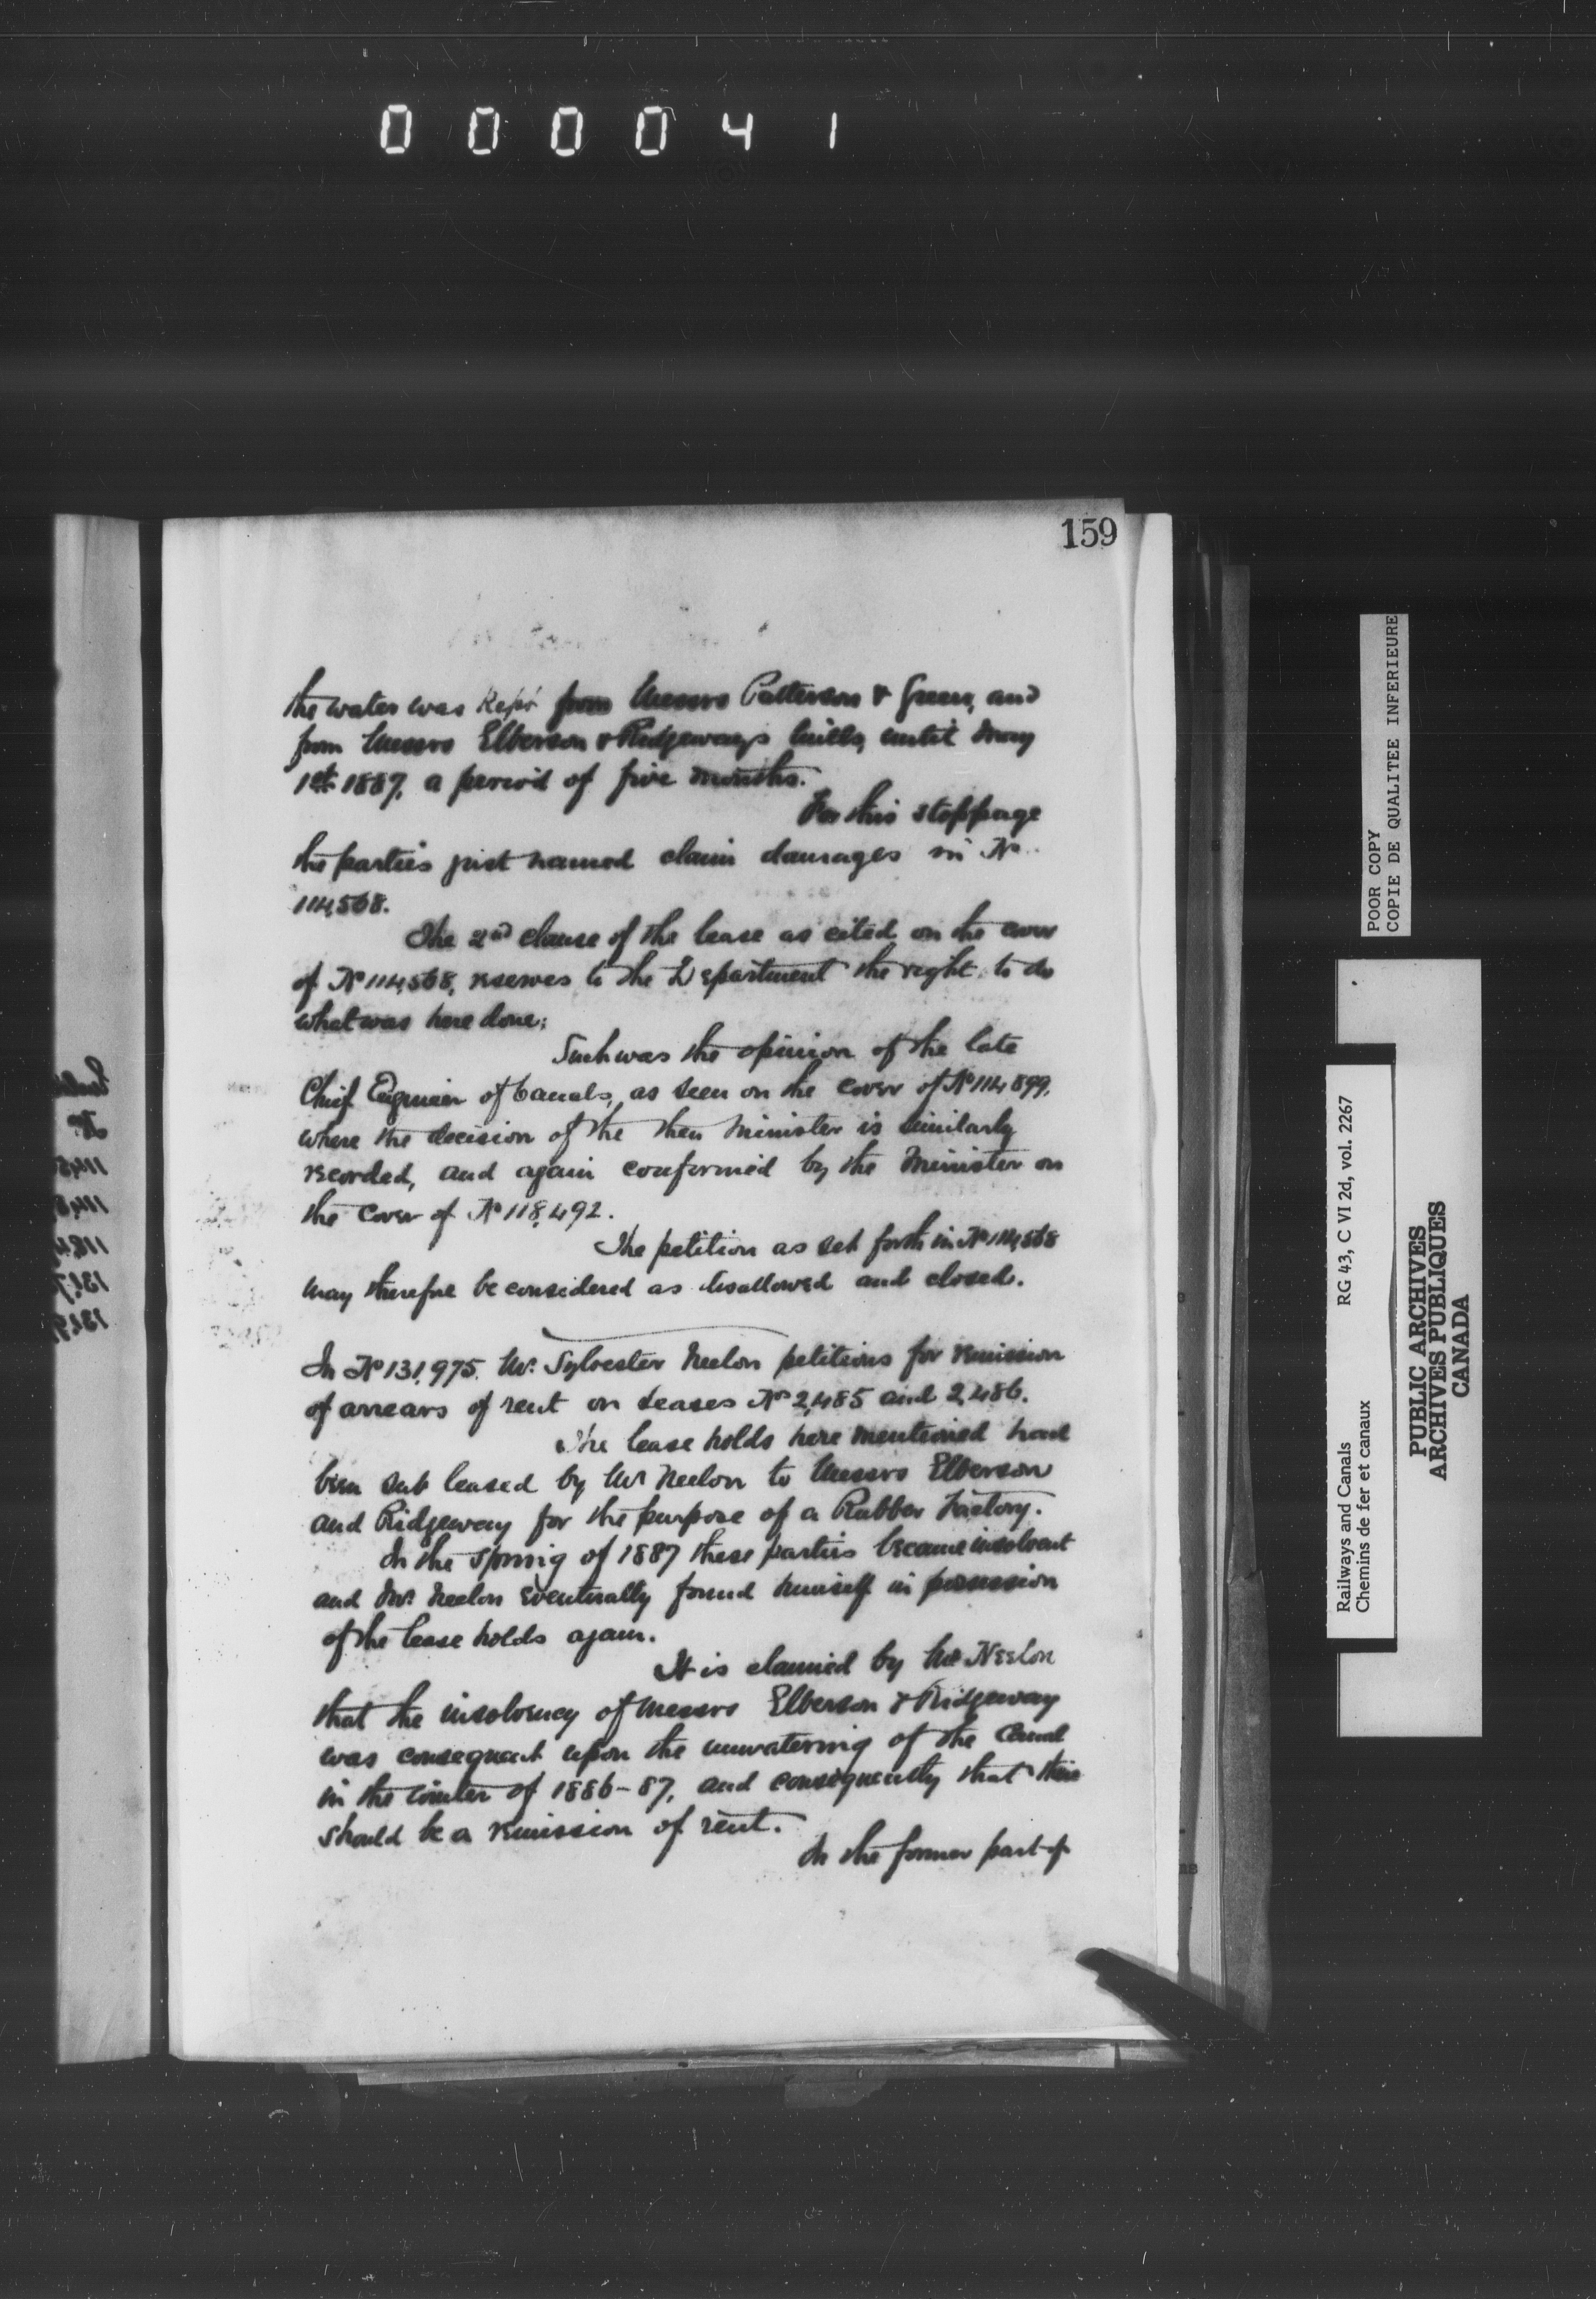 000041
159
the water was kept from Messrs Patterson & Green, and
from Messrs Elberson & Ridgeways mills, until May
1st 1887, a period of five months.
For this stoppage
the parties just named claim damages in No.
114,568.
The 2nd clause of the lease as cited on the cover
of No 114,568, reserves to the Department the right to do
what was here done;
Such was the opinion of the late
Chief Engineer of Canals, as seen on the cover of No 114899,
where the decision of the then Minister is similarly
recorded, and again confirmed by the Minister on
the cover of No 118,492.
The petition as set forth in No 114,568
may therefore be considered as disallowed and closed.
In No 131,975. Mr. Sylvester Neelon petitions for remission
of arrears of rent on Leases Nos 2,485 and 2,486.
The lease holds here mentioned had
been sub leased by Mr Neelon to Messrs Elberson
and Ridgeway for the purpose of a Rubber Factory.
In the Spring of 1887 these parties became insolvent
and Mr. Neelon eventually found himself in possession
of the lease holds again.
It is claimed by Mr Neelon
that the insolvency of Messrs Elberson & Ridgeway
was consequent upon the unwatering of the Canal
in the winter of 1886-87, and consequently that there
should be a remission of rent.
In the former part of
POOR COPY
COPIE DE QUALITEE INFERIEURE
Railways and Canals RG 43, C VI 2d, vol. 2267
Chemins de fer et canaux
PUBLIC ARCHIVES
ARCHIVES PUBLIQUES
CANADA